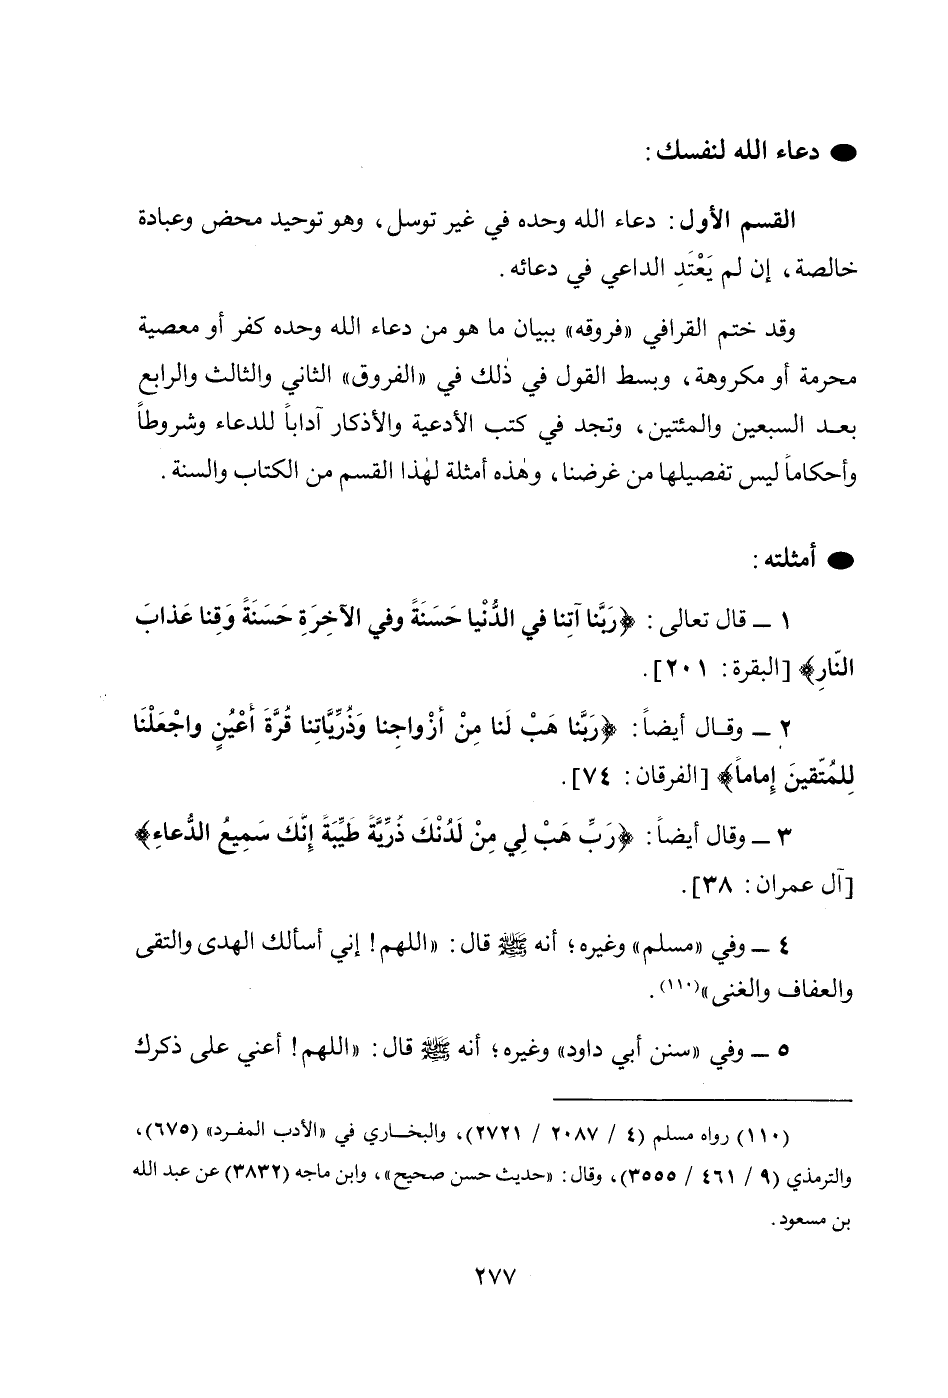 ● دعاء الله لنفسك :
القسم الأول : دعاء الله وحده في غير توسل ، وهو توحيد محض وعبادة
خالصة ، إن لم يَعْتَدِ الداعي في دعائه .
وقد ختم القرافي «فروقه» ببيان ما هو من دعاء الله وحده كفر أو معصية
محرمة أو مكروهة ، وبسط القول في ذٰلك في «الفروق» الثاني والثالث والرابع
بعـد السبعين والمئتين ، وتجد في كتب الأدعية والأذكار آداباً للدعاء وشروطاً
وأحكاماً ليس تفصيلها من غرضنا ، وهٰذه أمثلة لهٰذا القسم من الكتاب والسنة .
● أمثلته :
١ ــ قال تعالى : ﴿رَبَّنا آتِنا في الدُّنْيا حَسَنَةً وفي الآخِرَةِ حَسَنَةً وَقِنا عَذابَ
النّارِ﴾ [البقرة : ٢٠١].
٢ ــ وقـال أيضاً : ﴿رَبَّنا هَبْ لَنا مِنْ أزْواجِنا وَذُرِّيَّاتِنا قُرَّةَ أَعْيُنٍ واجْعَلْنَا
لِلمُتَّقينَ إِماماً﴾ [الفرقان : ٧٤].
٣ ــ وقال أيضاً : ﴿رَبِّ هَبْ لِي مِنْ لَدُنْكَ ذُرِّيَّةً طَيِّبَةً إِنَّكَ سَمِيعُ الدُّعاءِ﴾
[آل عمران : ٣٨].
٤ ــ وفي «مسلم» وغيره ؛ أنه ﷺ قال : «اللهم ! إني أسألك الهدى والتقى
والعفاف والغنى»(١١٠) .
٥ ــ وفي «سنن أبي داود» وغيره ؛ أنه ﷺ قال : «اللهم ! أعني على ذكرك
(١١٠) رواه مسلم (٤ / ٢٠٨٧ / ٢٧٢١)، والبخـاري في «الأدب المفـرد» (٦٧٥)،
والترمذي (٩ / ٤٦١ / ٣٥٥٥)، وقال : «حديث حسن صحيح»، وابن ماجه (٣٨٣٢) عن عبد الله
بن مسعود .
٢٧٧